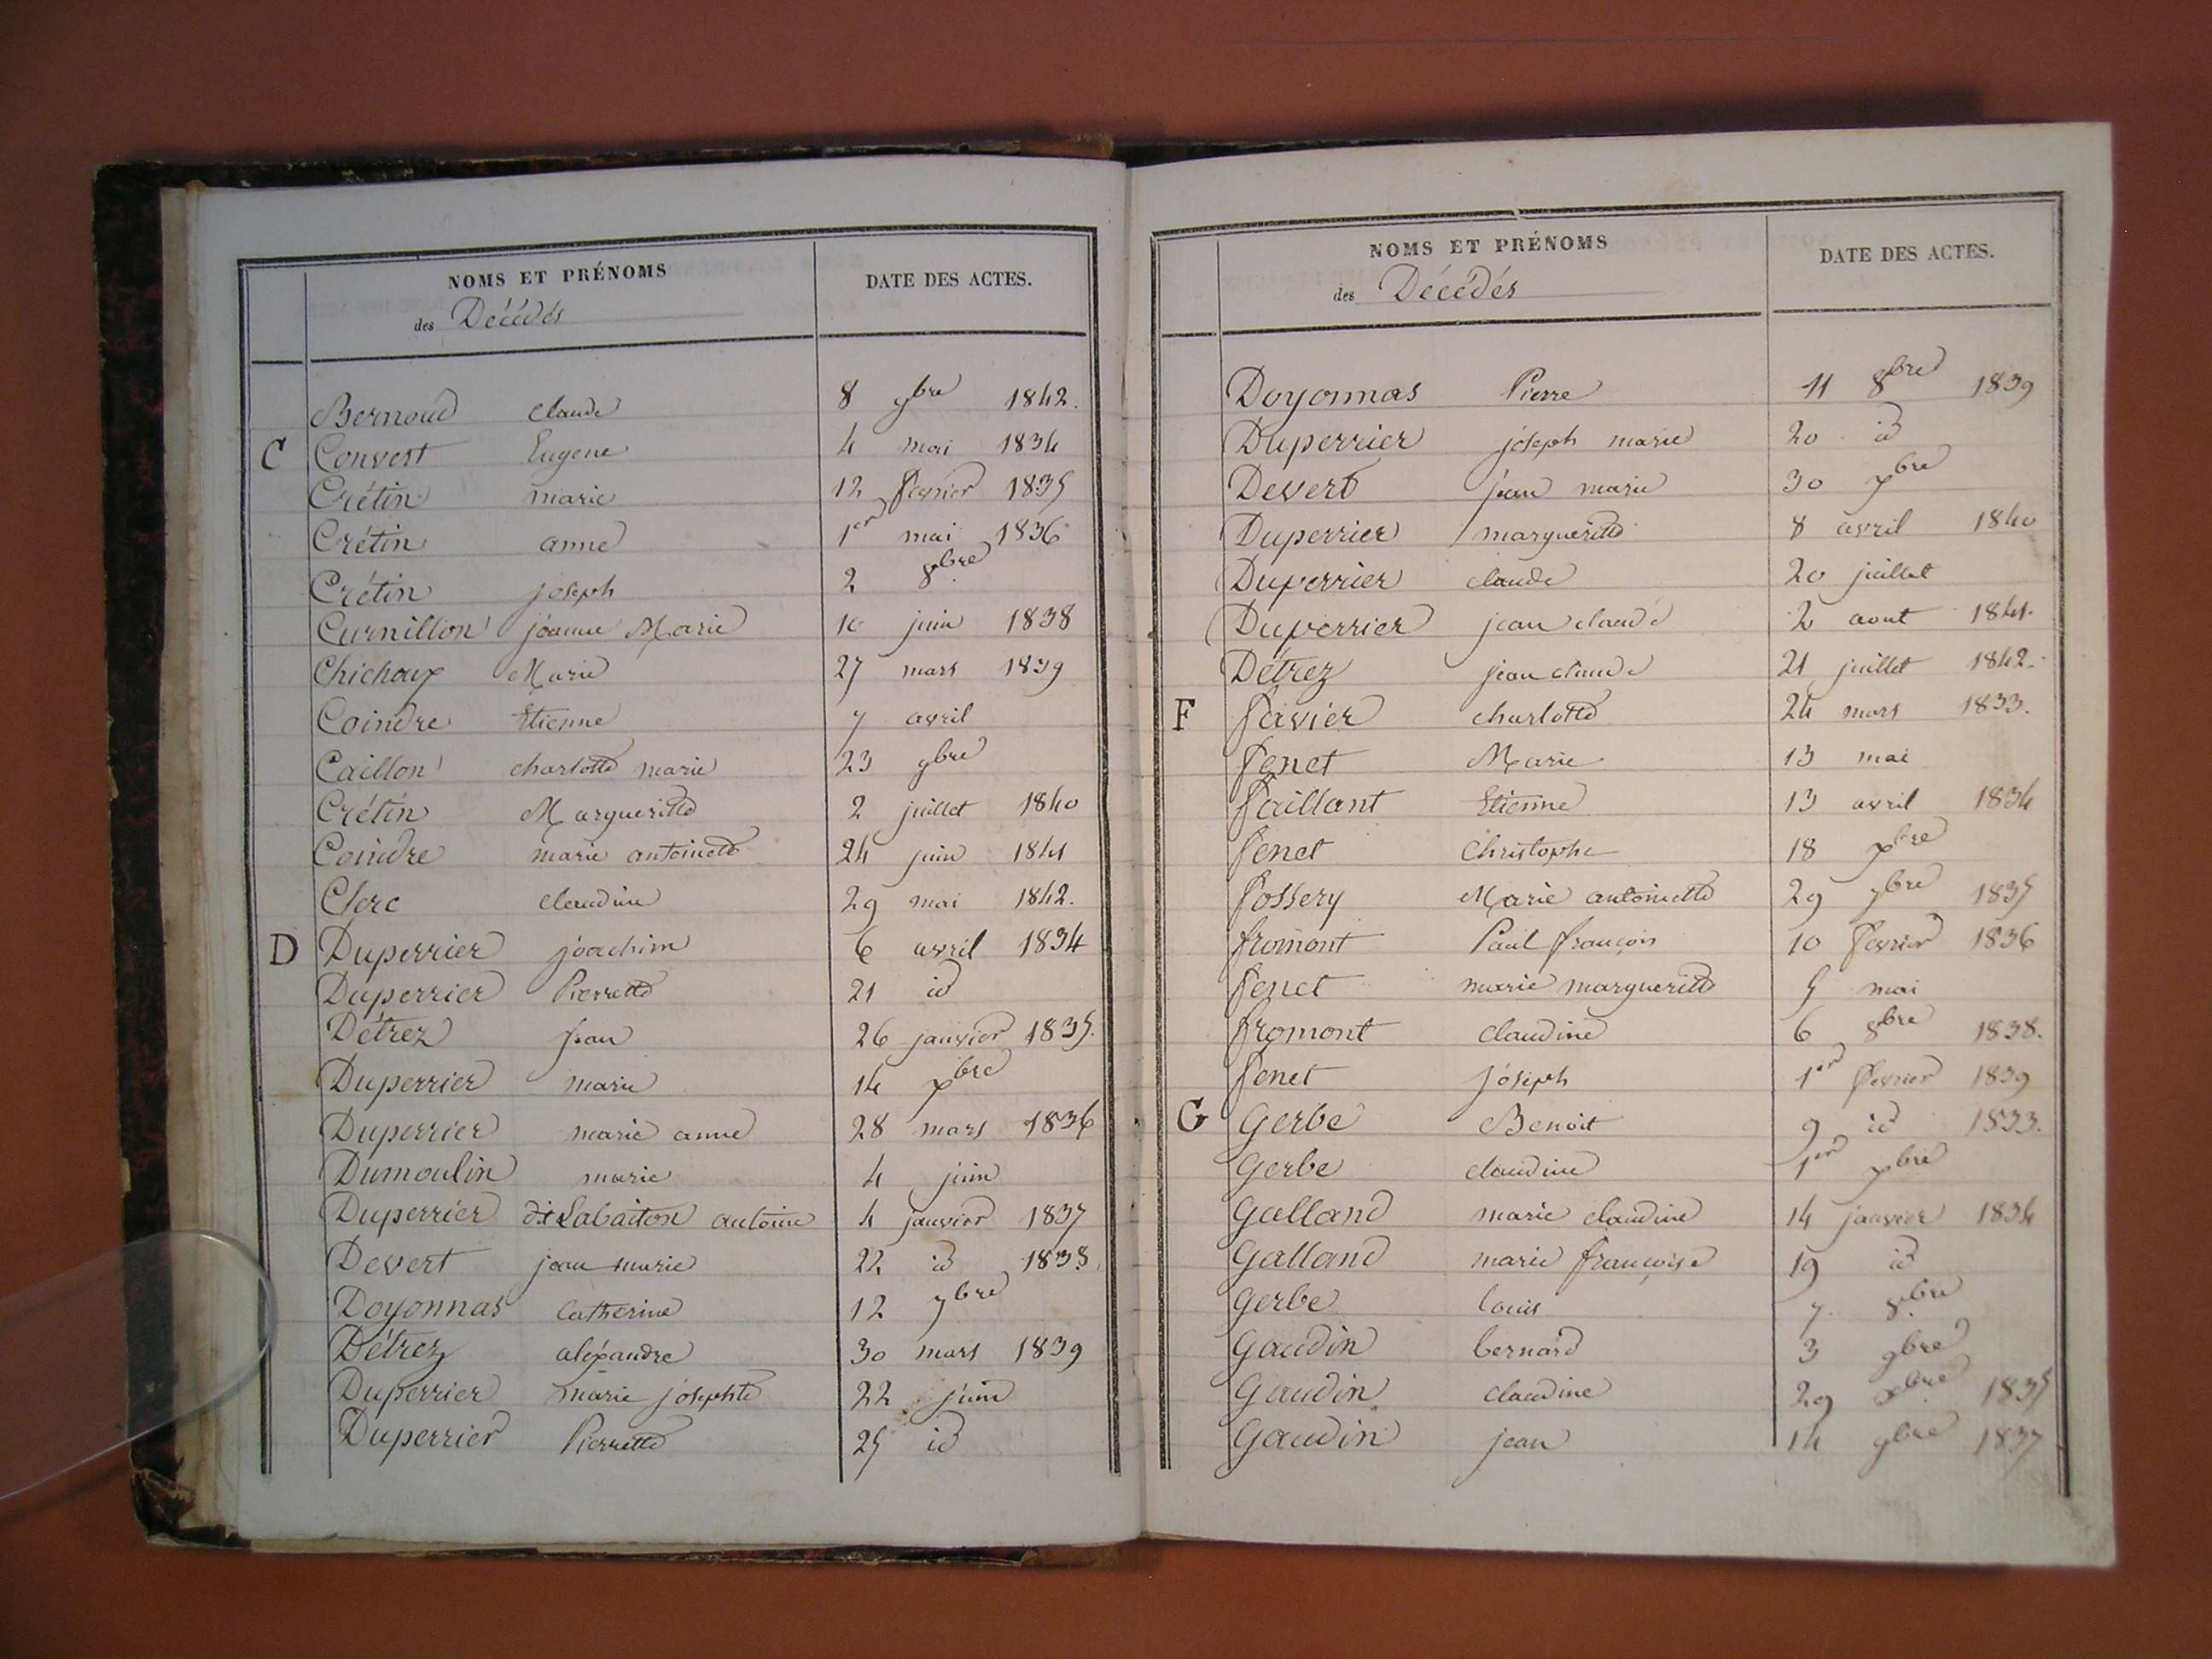 NOMS ET PRÉNOMS DATE DES ACTES.
des Décédés
Bernoud Claude 8 9bre 1842.
C Convert Eugene 4 mai 1834
Crétin marie 12 fevrier 1835
Crétin anne 1er mai 1836
Crétin joseph 2 8bre
Curnillon jeanne Marie juin 1838
Chichoux Marie 27 mars 1839
Coindre Etienne 7 avril
Caillon charlotte marie 23 9bre
Crétin Margueritte 2 juillet 1840
Coindre marie antoinette 24 juin 1841
Clerc claudine 29 mai 1842.
D Duperrier joachim 6 avril 1834
Duperrier Pierrette 21 id
Détrez jean 26 janvier 1835.
Duperrier marie 14 xbre
Duperrier marie anne 28 mars 1836
Dumoulin marie 4 juin
Duperrier dit Labaiton antoine 4 janvier 1837
Devert jean marie 22 id 1838.
Doyonnas Catherine 12 7bre
Détrez aléxandre 30 mars 1839
Duperrier marie josephte 22 juin
Duperrier Pierrette 25 id
NOMS ET PRÉNOMS DATE DES ACTES.
des Décédés
Doyonnas Pierre 11 8bre 1839
Duperrier joseph marie 20 id
Devert jean marie 30 xbre
Duperrier margueritte 8 avril 1840
Duperrier claude 20 juillet
Duperrier jean claude 2 aout 1841.
Détrez jean claude 21 juillet 1842.
F Favier charlotte 24 mars 1833.
Fenet Marie 13 mai
Faillant Etienne 13 avril 1834
Fenet Christophe 18 xbre
Fossery Marie antoinette 29 7bre 1835
fromont Paul françois 10 fevrier 1836
Fenet marie margueritte 5 mai
fromont claudine 6 8bre 1838.
Fenet joseph 1er fevrier 1839
G Gerbe Benoit 9 id 1833.
Gerbe claudine 1er xbre
Galland marie claudine 14 janvier 1834
Galland marie françoise 19 id
Gerbe louis 7 8bre
Gaudin bernard 3 9bre
Gaudin claudine 29 xbre 1835
Gaudin jean 14 9bre 1837